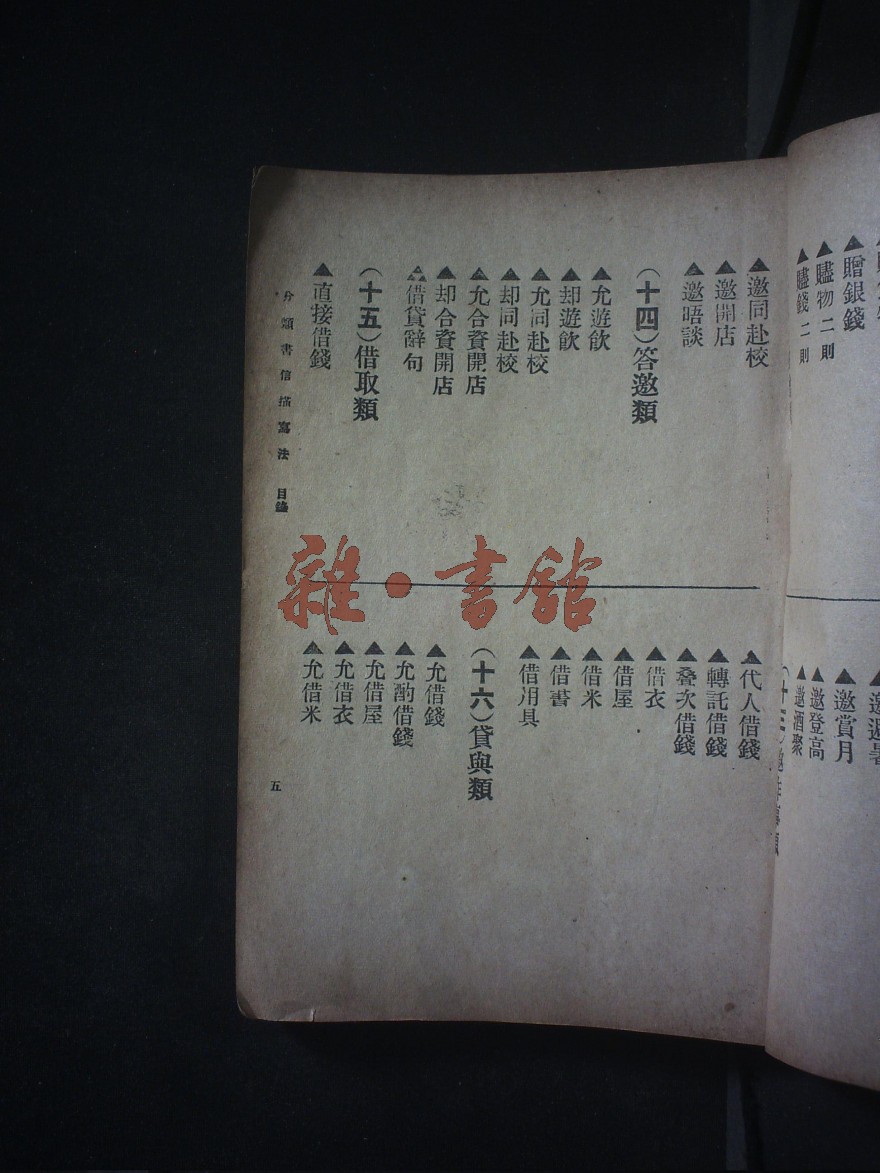 贈銀錢
贐物 二則
贐錢 二則
邀賞月
邀登高
邀酒聚
▲邀同赴校
▲邀開店
▲邀晤談
（十四）答邀類
▲允遊飲
▲却遊飲
▲允同赴校
▲却同赴校
▲允合資開店
▲却合資開店
▲借貸辭句
（十五）借取類
▲直接借錢
▲代人借錢
▲轉託借錢
▲叠次借錢
▲借衣
▲借屋
▲借米
▲借書
▲借用具
（十六）貸與類
▲允借錢
▲允酌借錢
▲允借屋
▲允借衣
▲允借米
分類書信描寫法 目錄
五
雜·書館